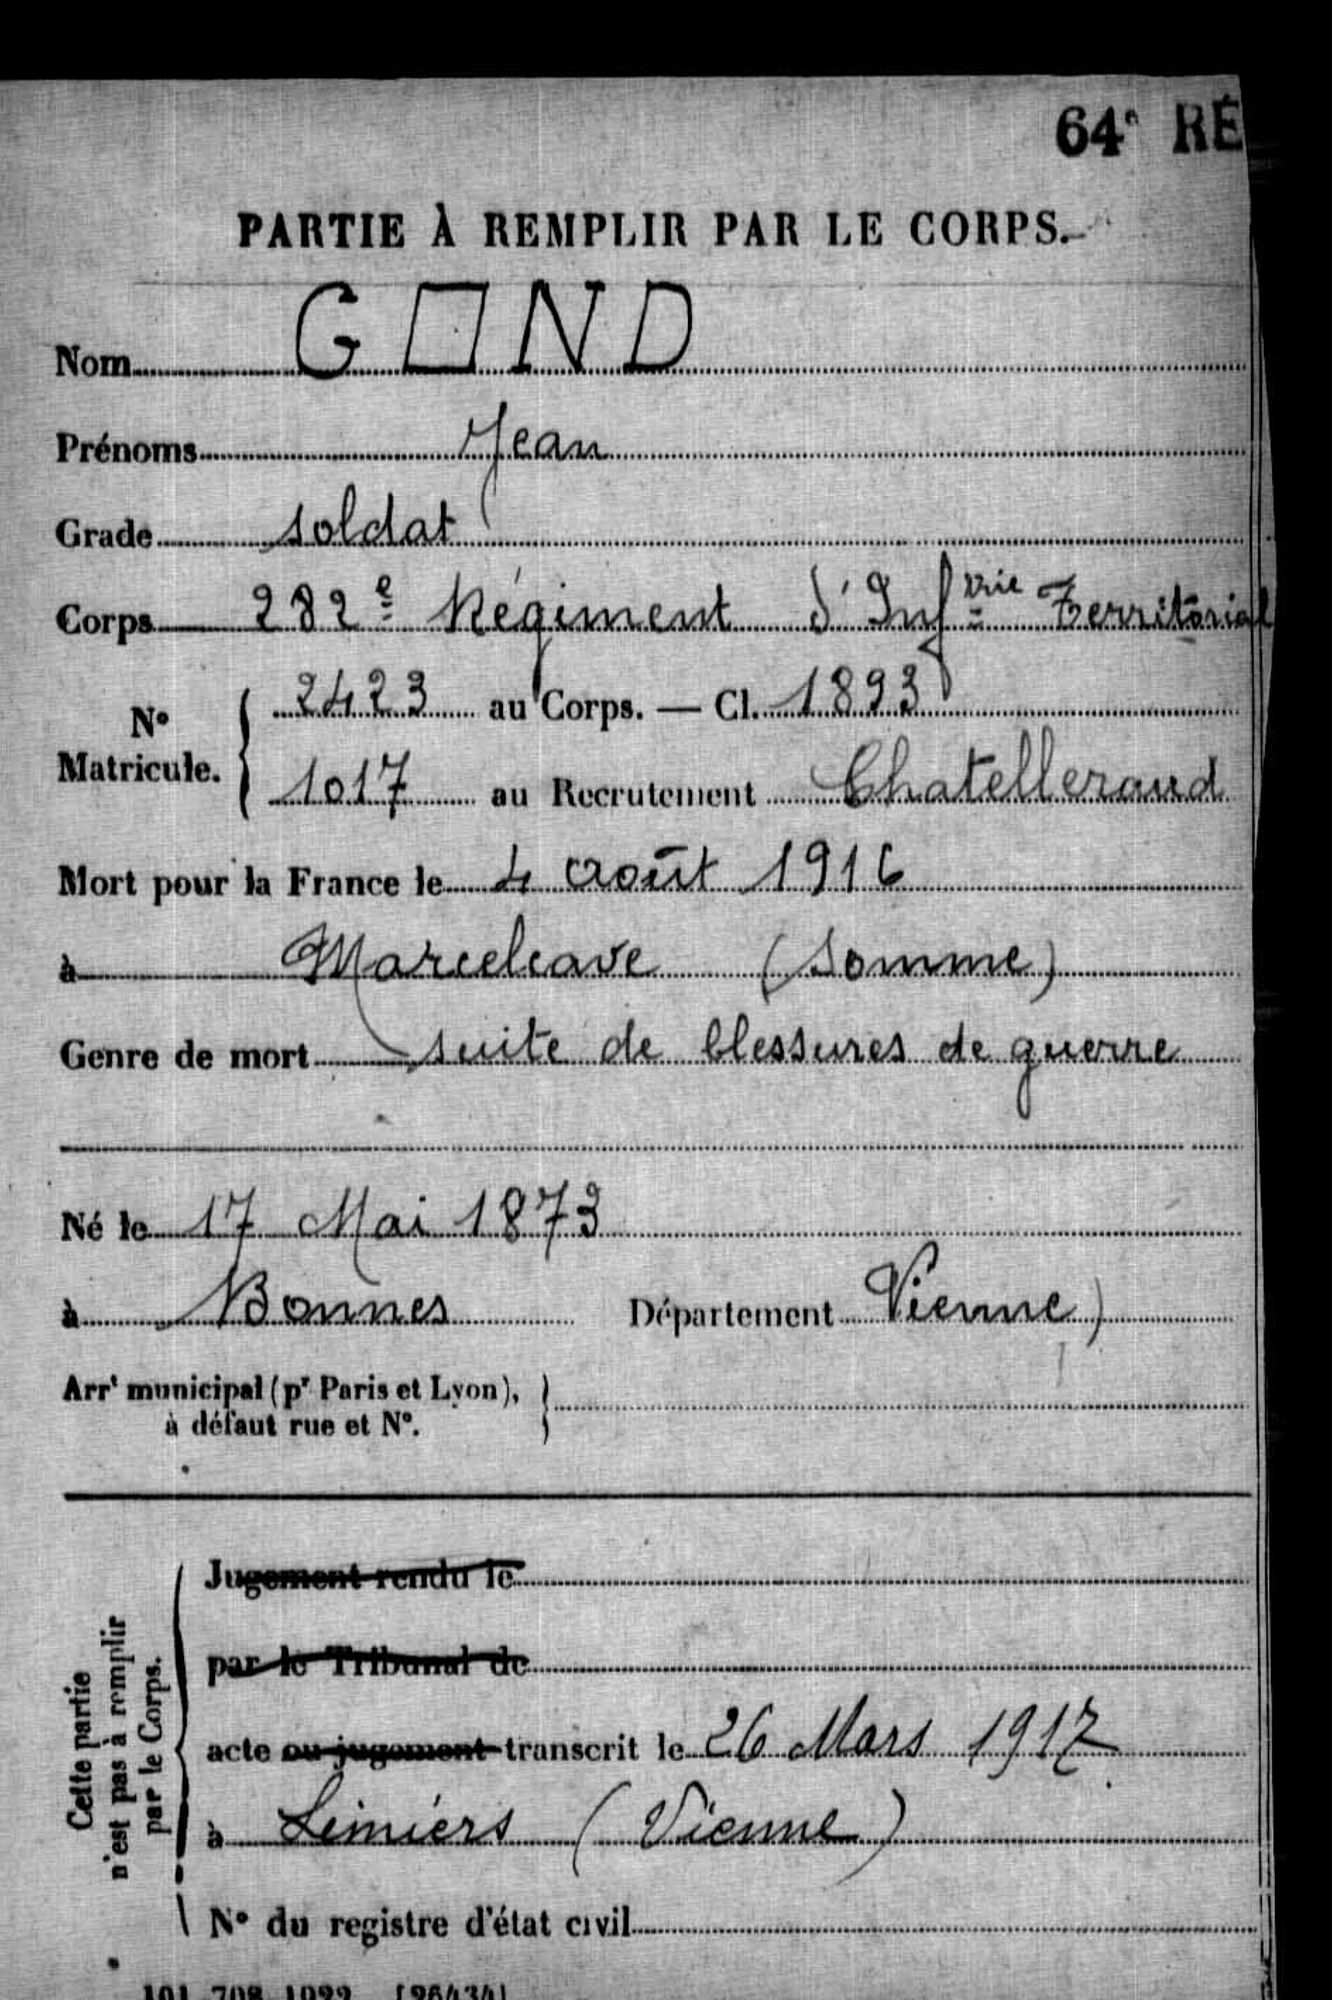 64e RÉ
PARTIE À REMPLIR PAR LE CORPS.
Nom GOND
Prénoms Jean
Grade soldat
Corps 282e Régiment d'Infvrie Territorial
N° Matricule. { 2423 au Corps. — Cl. 1893
1017 au Recrutement Chatelleraud
Mort pour la France le 4 août 1916
à Marcelcave (Somme)
Genre de mort suite de blessures de guerre
Né le 17 Mai 1873
à Bonnes Département Vienne)
Arrt municipal (pr Paris et Lyon), }
à défaut rue et N°.
Cette partie
n'est pas à remplir
par le Corps.
Jugement rendu le
par le Tribunal de
acte ou jugement transcrit le 26 Mars 1917
à Liniers (Vienne)
N° du registre d'état civil
101-708-1922. [26434]